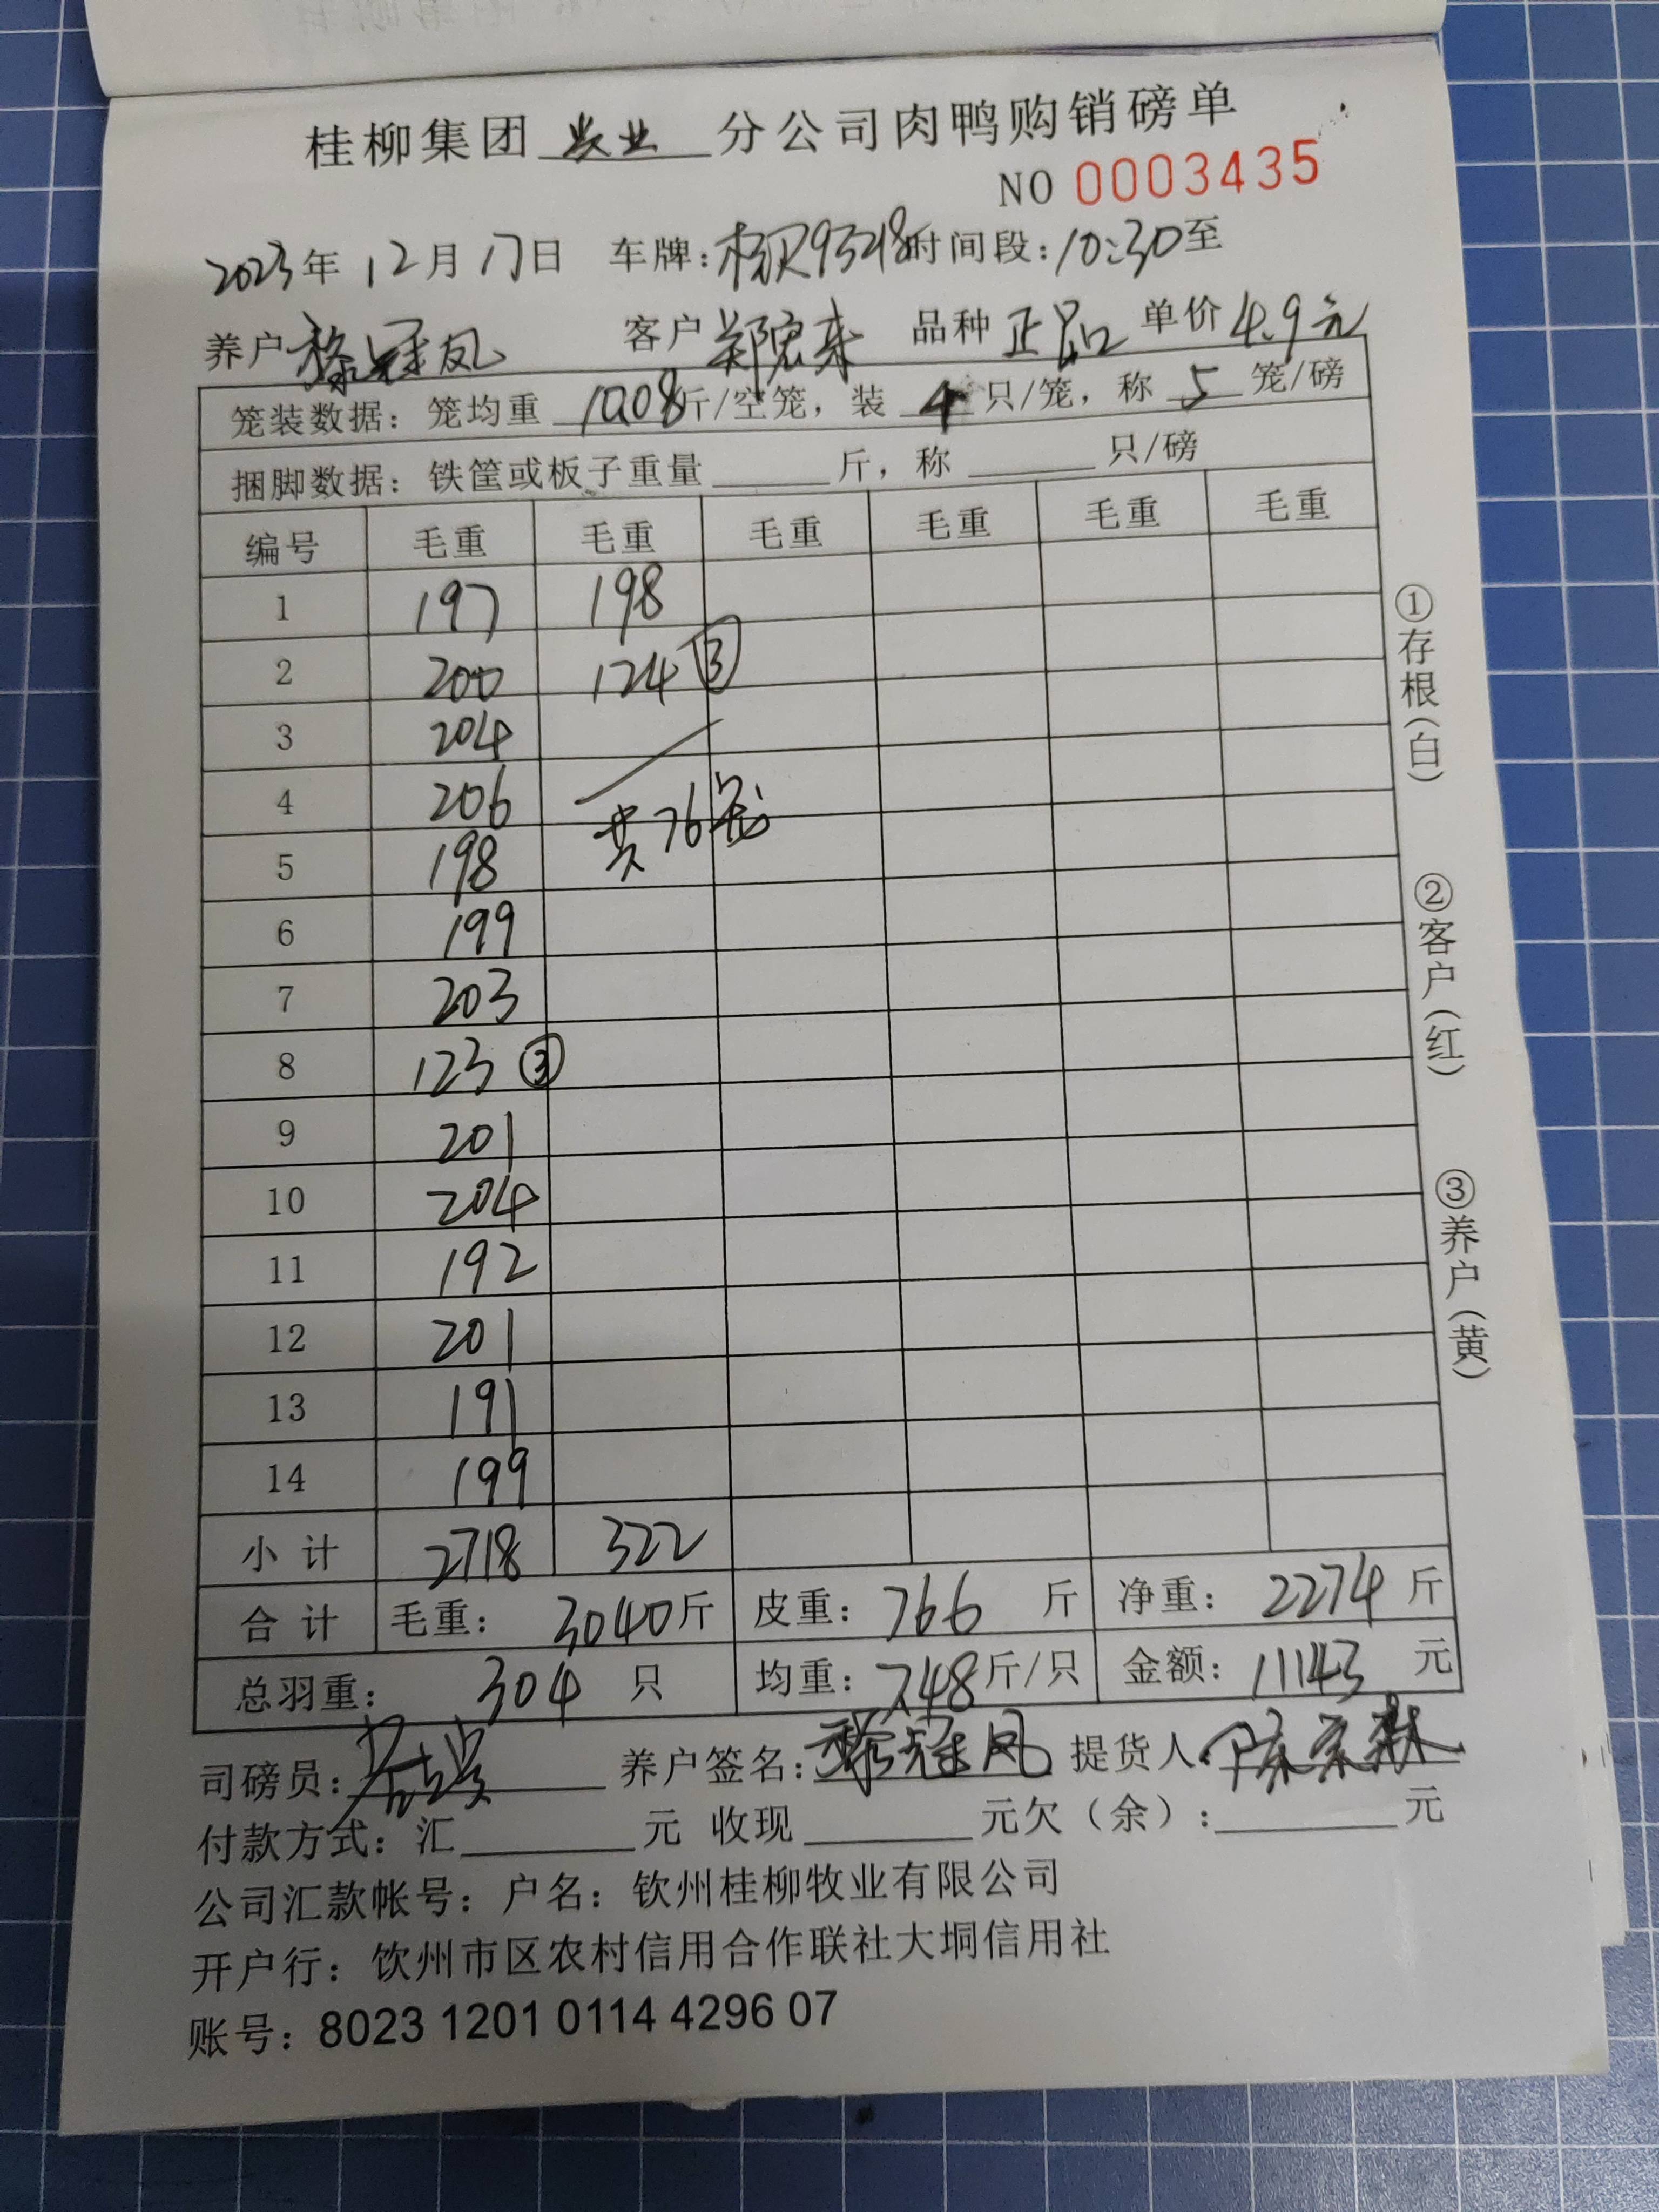 桂柳集团 农业 分公司肉鸭购销磅单
NO 0003435
2023年 12月 17日 车牌: 9348 时间段: 10:30至
养户 冠凤 客户 郑宏来 品种 正品 单价 4.9元
笼装数据: 笼均重 10.08斤/空笼, 装 4 只/笼, 称 5 笼/磅
捆脚数据: 铁筐或板子重量 斤, 称 只/磅
编号 毛重 毛重 毛重 毛重 毛重 毛重
1 197 198
2 200 124 ③
3 204
4 206 共76笼
5 198
6 199
7 203
8 123 ③
9 201
10 204
11 192
12 201
13 191
14 199
小计 2718 322
合计 毛重: 3040斤 皮重: 766 斤 净重: 2274 斤
总羽重: 304 只 均重: 7.48斤/只 金额: 11143 元
司磅员: 养户签名: 冠凤 提货人:
付款方式: 汇 元 收现 元欠(余): 元
公司汇款帐号: 户名: 钦州桂柳牧业有限公司
开户行: 饮州市区农村信用合作联社大垌信用社
账号: 8023 1201 0114 4296 07
①存根(白)
②客户(红)
③养户(黄)